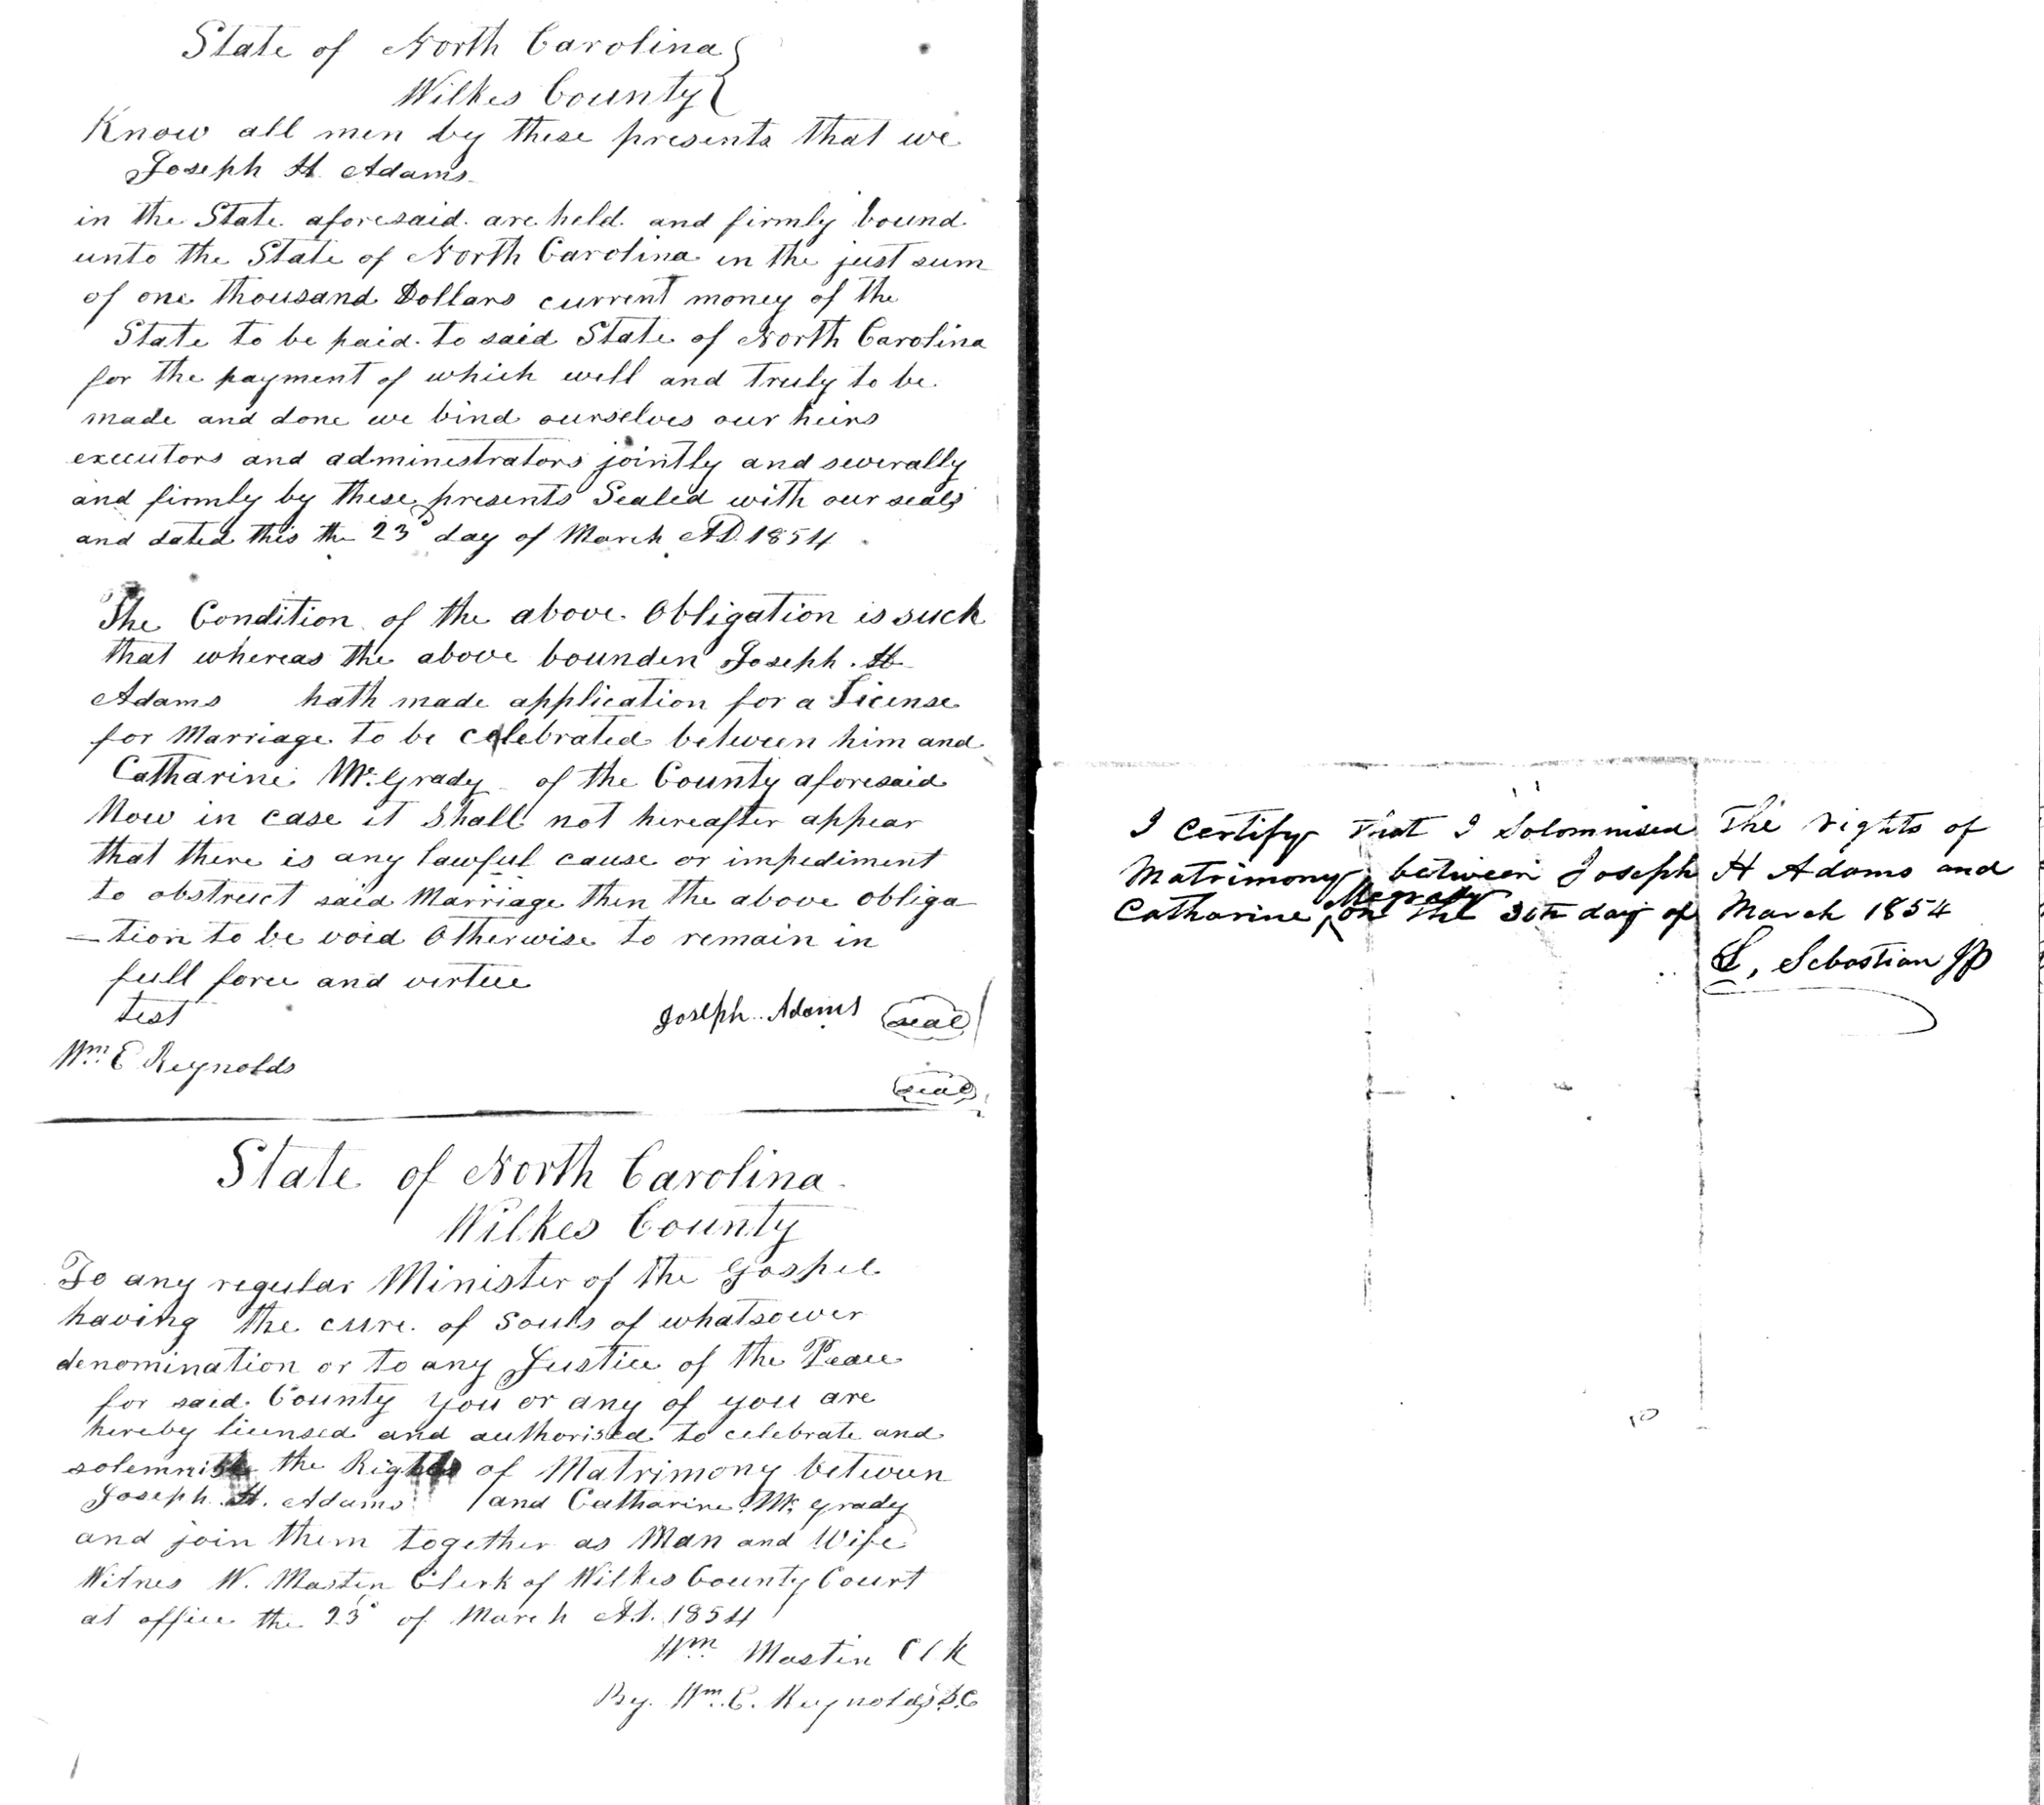 State of North Carolina
Wilkes County
Know all men by these presents that we
Joseph H. Adams
in the State aforesaid are held and firmly bound
unto the State of North Carolina in the just sum
of one thousand Dollars current money of the
State to be paid to said State of North Carolina
for the payment of which well and truly to be
made and done we bind ourselves our heirs
executors and administrators jointly and severally
and firmly by these presents Sealed with our seals
and dated this the 23d day of March A.D. 1854
The Condition of the above Obligation is such
that whereas the above bounden Joseph H
Adams hath made application for a License
for Marriage to be celebrated between him and
Catharine Mc. Grady of the County aforesaid
Now in case it shall not hereafter appear
that there is any lawful cause or impediment
to obstruct said Marriage then the above obliga
-tion to be void Otherwise to remain in
full force and virtue
test
Joseph Adams seal
Wm. E Reynolds
seal
State of North Carolina
Wilkes County
To any regular Minister of the Gospel
having the cure of Souls of whatsoever
denomination or to any Justice of the Peace
for said County you or any of you are
hereby licensed and authorised to celebrate and
solemnise the Rights of Matrimony between
Joseph H. Adams and Catharine Mc. Grady
and join them together as Man and Wife
Witnes W. Mastin Clerk of Wilkes County Court
at office the 23d of March A.D. 1854
Wm. Mastin Clk
By. Wm. E. Reynolds D.C
I Certify that I Solomnised the rights of
Matrimony between Joseph H Adams and
Catharine Megrady on the 30th day of March 1854
S, Sebastian JP